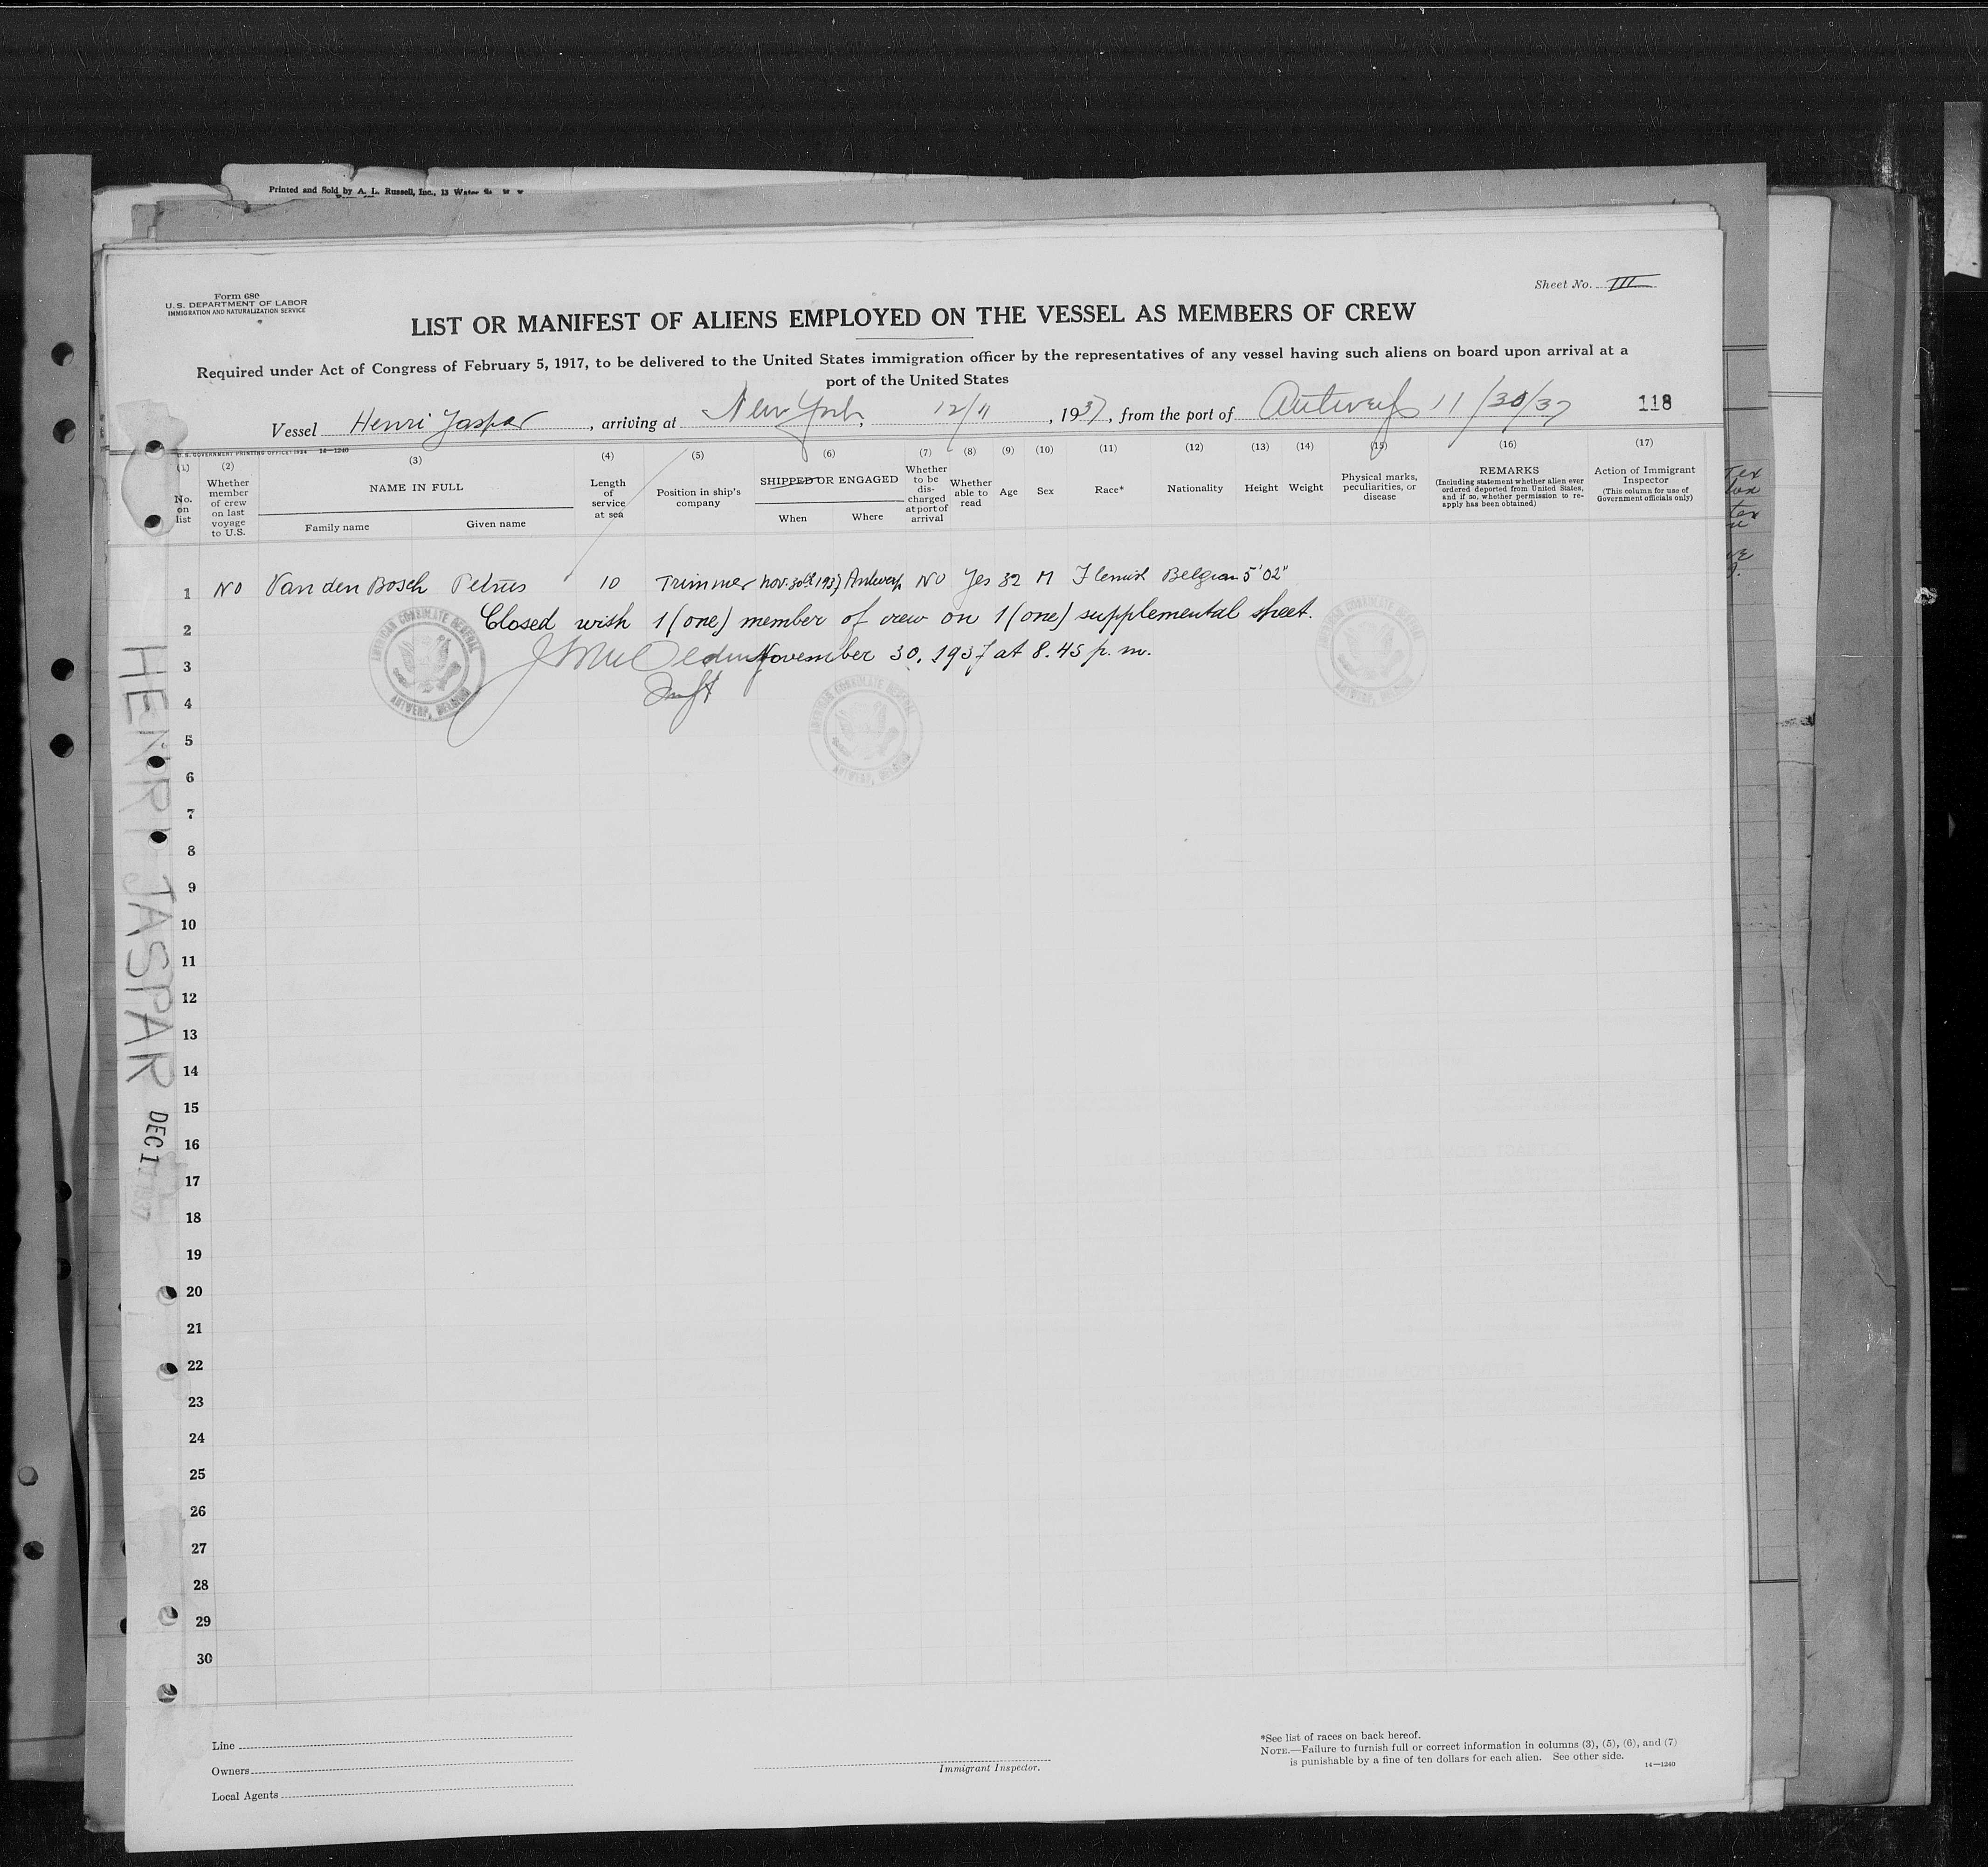 Printed and Sold by A. L. Russell, Inc., 13 Water
Form 680
U. S. DEPARTMENT OF LABOR
IMMIGRATION AND NATURALIZATION SERVICE
Sheet No. III
LIST OR MANIFEST OF ALIENS EMPLOYED ON THE VESSEL AS MEMBERS OF CREW
Required under Act of Congress of February 5, 1917, to be delivered to the United States immigration officer by the representatives of any vessel having such aliens on board upon arrival at a
port of the United States
Vessel Henri Jaspar, arriving at New York, 12/11, 1937, from the port of Antwerp 11/30/37 118
U. S. GOVERNMENT PRINTING OFFICE: 1934 14—1240
(1) (2) (3) (4) (5) (6) (7) (8) (9) (10) (11) (12) (13) (14) (15) (16) (17)
No. on list
Whether member of crew on last voyage to U.S.
NAME IN FULL
Family name
Given name
Length of service at sea
Position in ship's company
SHIPPED OR ENGAGED
When
Where
Whether to be discharged at port of arrival
Whether able to read
Age
Sex
Race*
Nationality
Height
Weight
Physical marks, peculiarities, or disease
REMARKS
(Including statement whether alien ever ordered deported from United States, and if so, whether permission to re-apply has been obtained)
Action of Immigrant Inspector
(This column for use of Government officials only)
1 No Van den Bosch Petrus 10 Trimmer Nov. 30th 1937 Antwerp No Yes 32 M Flemish Belgian 5'02"
2 Closed with 1 (one) member of crew on 1 (one) supplemental sheet.
3 November 30, 1937 at 8.45 p. m.
4
5
6
7
8
9
10
11
12
13
14
15
16
17
18
19
20
21
22
23
24
25
26
27
28
29
30
AMERICAN CONSULATE GENERAL
ANTWERP, BELGIUM
AMERICAN CONSULATE GENERAL
ANTWERP, BELGIUM
AMERICAN CONSULATE GENERAL
ANTWERP, BELGIUM
HENRI JASPAR
DEC 11 1937
Line
Owners
Local Agents
Immigrant Inspector.
*See list of races on back hereof.
NOTE.—Failure to furnish full or correct information in columns (3), (5), (6), and (7)
is punishable by a fine of ten dollars for each alien. See other side.
14—1240